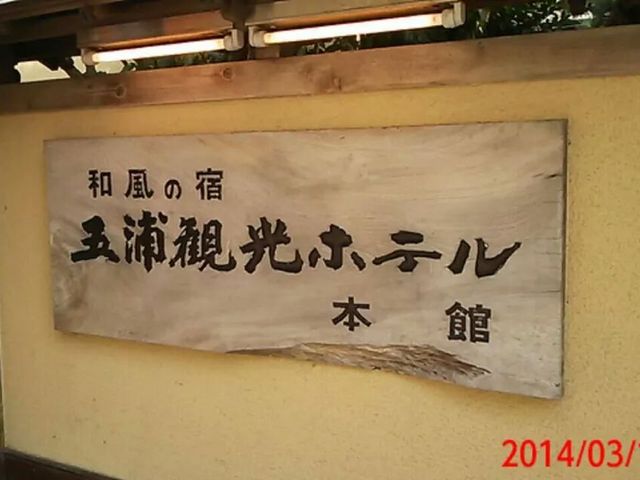 和風の宿
五浦観光ホテル
本館
2014/03/